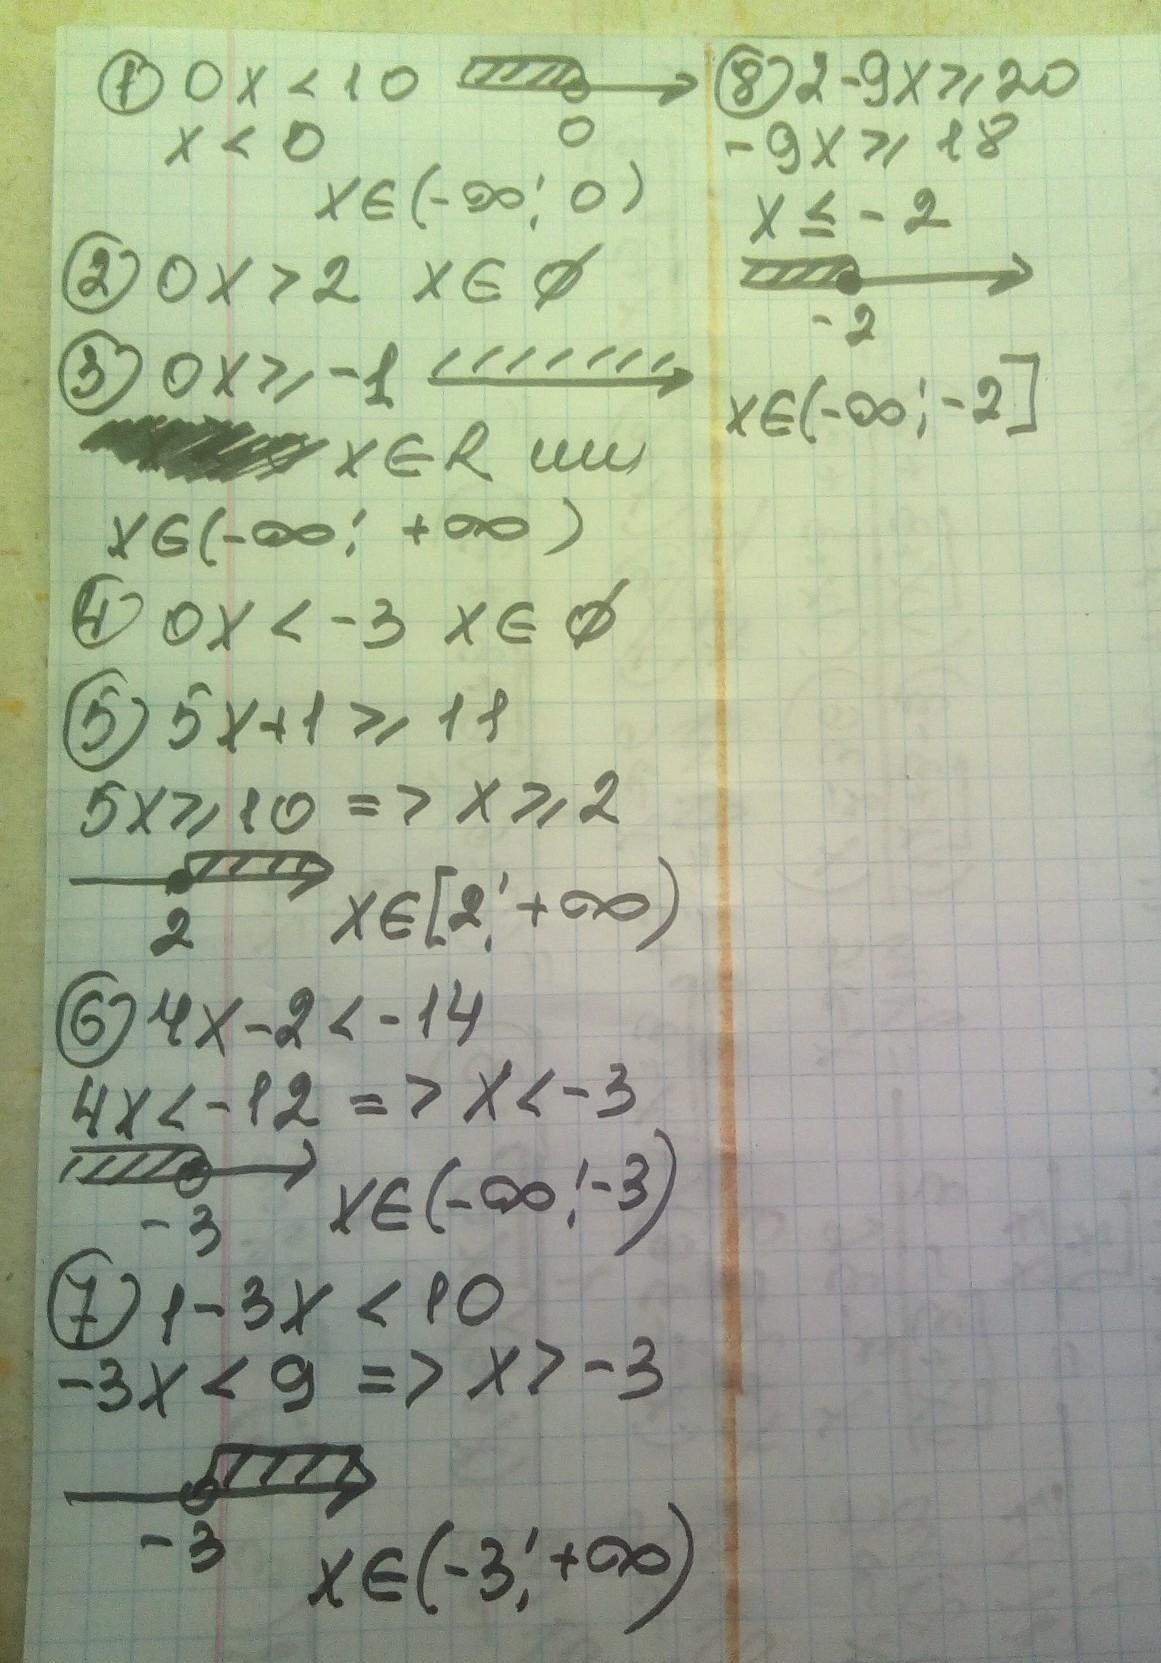 ① 0x < 10
0
x < 0
x∈(-∞; 0)
② 0x > 2 x∈∅
③ 0x ⩾ -1
x∈R или
x∈(-∞; +∞)
④ 0x < -3 x∈∅
⑤ 5x+1 ⩾ 11
5x ⩾ 10 => x ⩾ 2
2
x∈[2; +∞)
⑥ 4x-2 < -14
4x < -12 => x < -3
-3
x∈(-∞; -3)
⑦ 1-3x < 10
-3x < 9 => x > -3
-3
x∈(-3; +∞)
⑧ 2-9x ⩾ 20
-9x ⩾ 18
x ≤ -2
-2
x∈(-∞; -2]